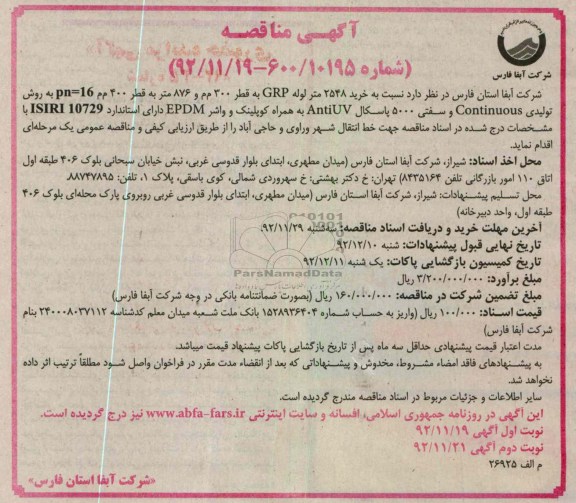 آگهی مناقصه
(شماره ۶۰۰/۱۰۱۹۵-۹۲/۱۱/۱۹)
شرکت آبفا فارس
شرکت آبفا استان فارس در نظر دارد نسبت به خرید ۲۵۴۸ متر لوله GRP به قطر ۳۰۰ م‌م و ۸۷۶ متر به قطر ۴۰۰ م‌م pn=16 به روش
تولیدی Continuous و سفتی ۵۰۰۰ پاسکال AntiUV به همراه کوپلینک و واشر EPDM دارای استاندارد ISIRI 10729 با
مشخصات درج شده در اسناد مناقصه جهت خط انتقال شهر وراوی و حاجی آباد را از طریق ارزیابی کیفی و مناقصه عمومی یک مرحله‌ای
اقدام نماید.
محل اخذ اسناد: شیراز، شرکت آبفا استان فارس (میدان مطهری، ابتدای بلوار قدوسی غربی، نبش خیابان سبحانی بلوک ۴۰۶ طبقه اول
اتاق ۱۱۰ امور بازرگانی تلفن ۸۴۳۵۱۶۴) تهران: خ دکتر بهشتی: خ سهروردی شمالی، کوی باسقی، پلاک ۱، تلفن: ۸۸۷۴۷۸۹۵.
محل تسلیم پیشنهادات: شیراز، شرکت آبفا استان فارس (میدان مطهری، ابتدای بلوار قدوسی غربی روبروی پارک محله‌ای بلوک ۴۰۶
طبقه اول، واحد دبیرخانه)
آخرین مهلت خرید و دریافت اسناد مناقصه: سه‌شنبه ۹۲/۱۱/۲۹
تاریخ نهایی قبول پیشنهادات: شنبه ۹۲/۱۲/۱۰
تاریخ کمیسیون بازگشایی پاکات: یک شنبه ۹۲/۱۲/۱۱
مبلغ برآورد: ۳/۲۰۰/۰۰۰/۰۰۰ ریال
مبلغ تضمین شرکت در مناقصه: ۱۶۰/۰۰۰/۰۰۰ ریال (بصورت ضمانتنامه بانکی در وجه شرکت آبفا فارس)
قیمت اسناد: ۱۰۰/۰۰۰ ریال (واریز به حساب شماره ۱۵۲۸۹۳۶۴۰۴ بانک ملت شعبه میدان معلم کدشناسه ۲۴۰۰۰۸۰۳۷۱۱۲ بنام
شرکت آبفا فارس)
مدت اعتبار قیمت پیشنهادی حداقل سه ماه پس از تاریخ بازگشایی پاکات پیشنهاد قیمت میباشد.
به پیشنهادهای فاقد امضاء مشروط، مخدوش و پیشنهاداتی که بعد از انقضاء مدت مقرر در فراخوان واصل شود مطلقاً ترتیب اثر داده
نخواهد شد.
سایر اطلاعات و جزئیات مربوط در اسناد مناقصه مندرج گردیده است.
این آگهی در روزنامه جمهوری اسلامی، افسانه و سایت اینترنتی www.abfa-fars.ir نیز درج گردیده است.
نوبت اول آگهی ۹۲/۱۱/۱۹
نوبت دوم آگهی ۹۲/۱۱/۲۱
م الف ۲۶۹۲۵
«شرکت آبفا استان فارس»
ParsNamadData